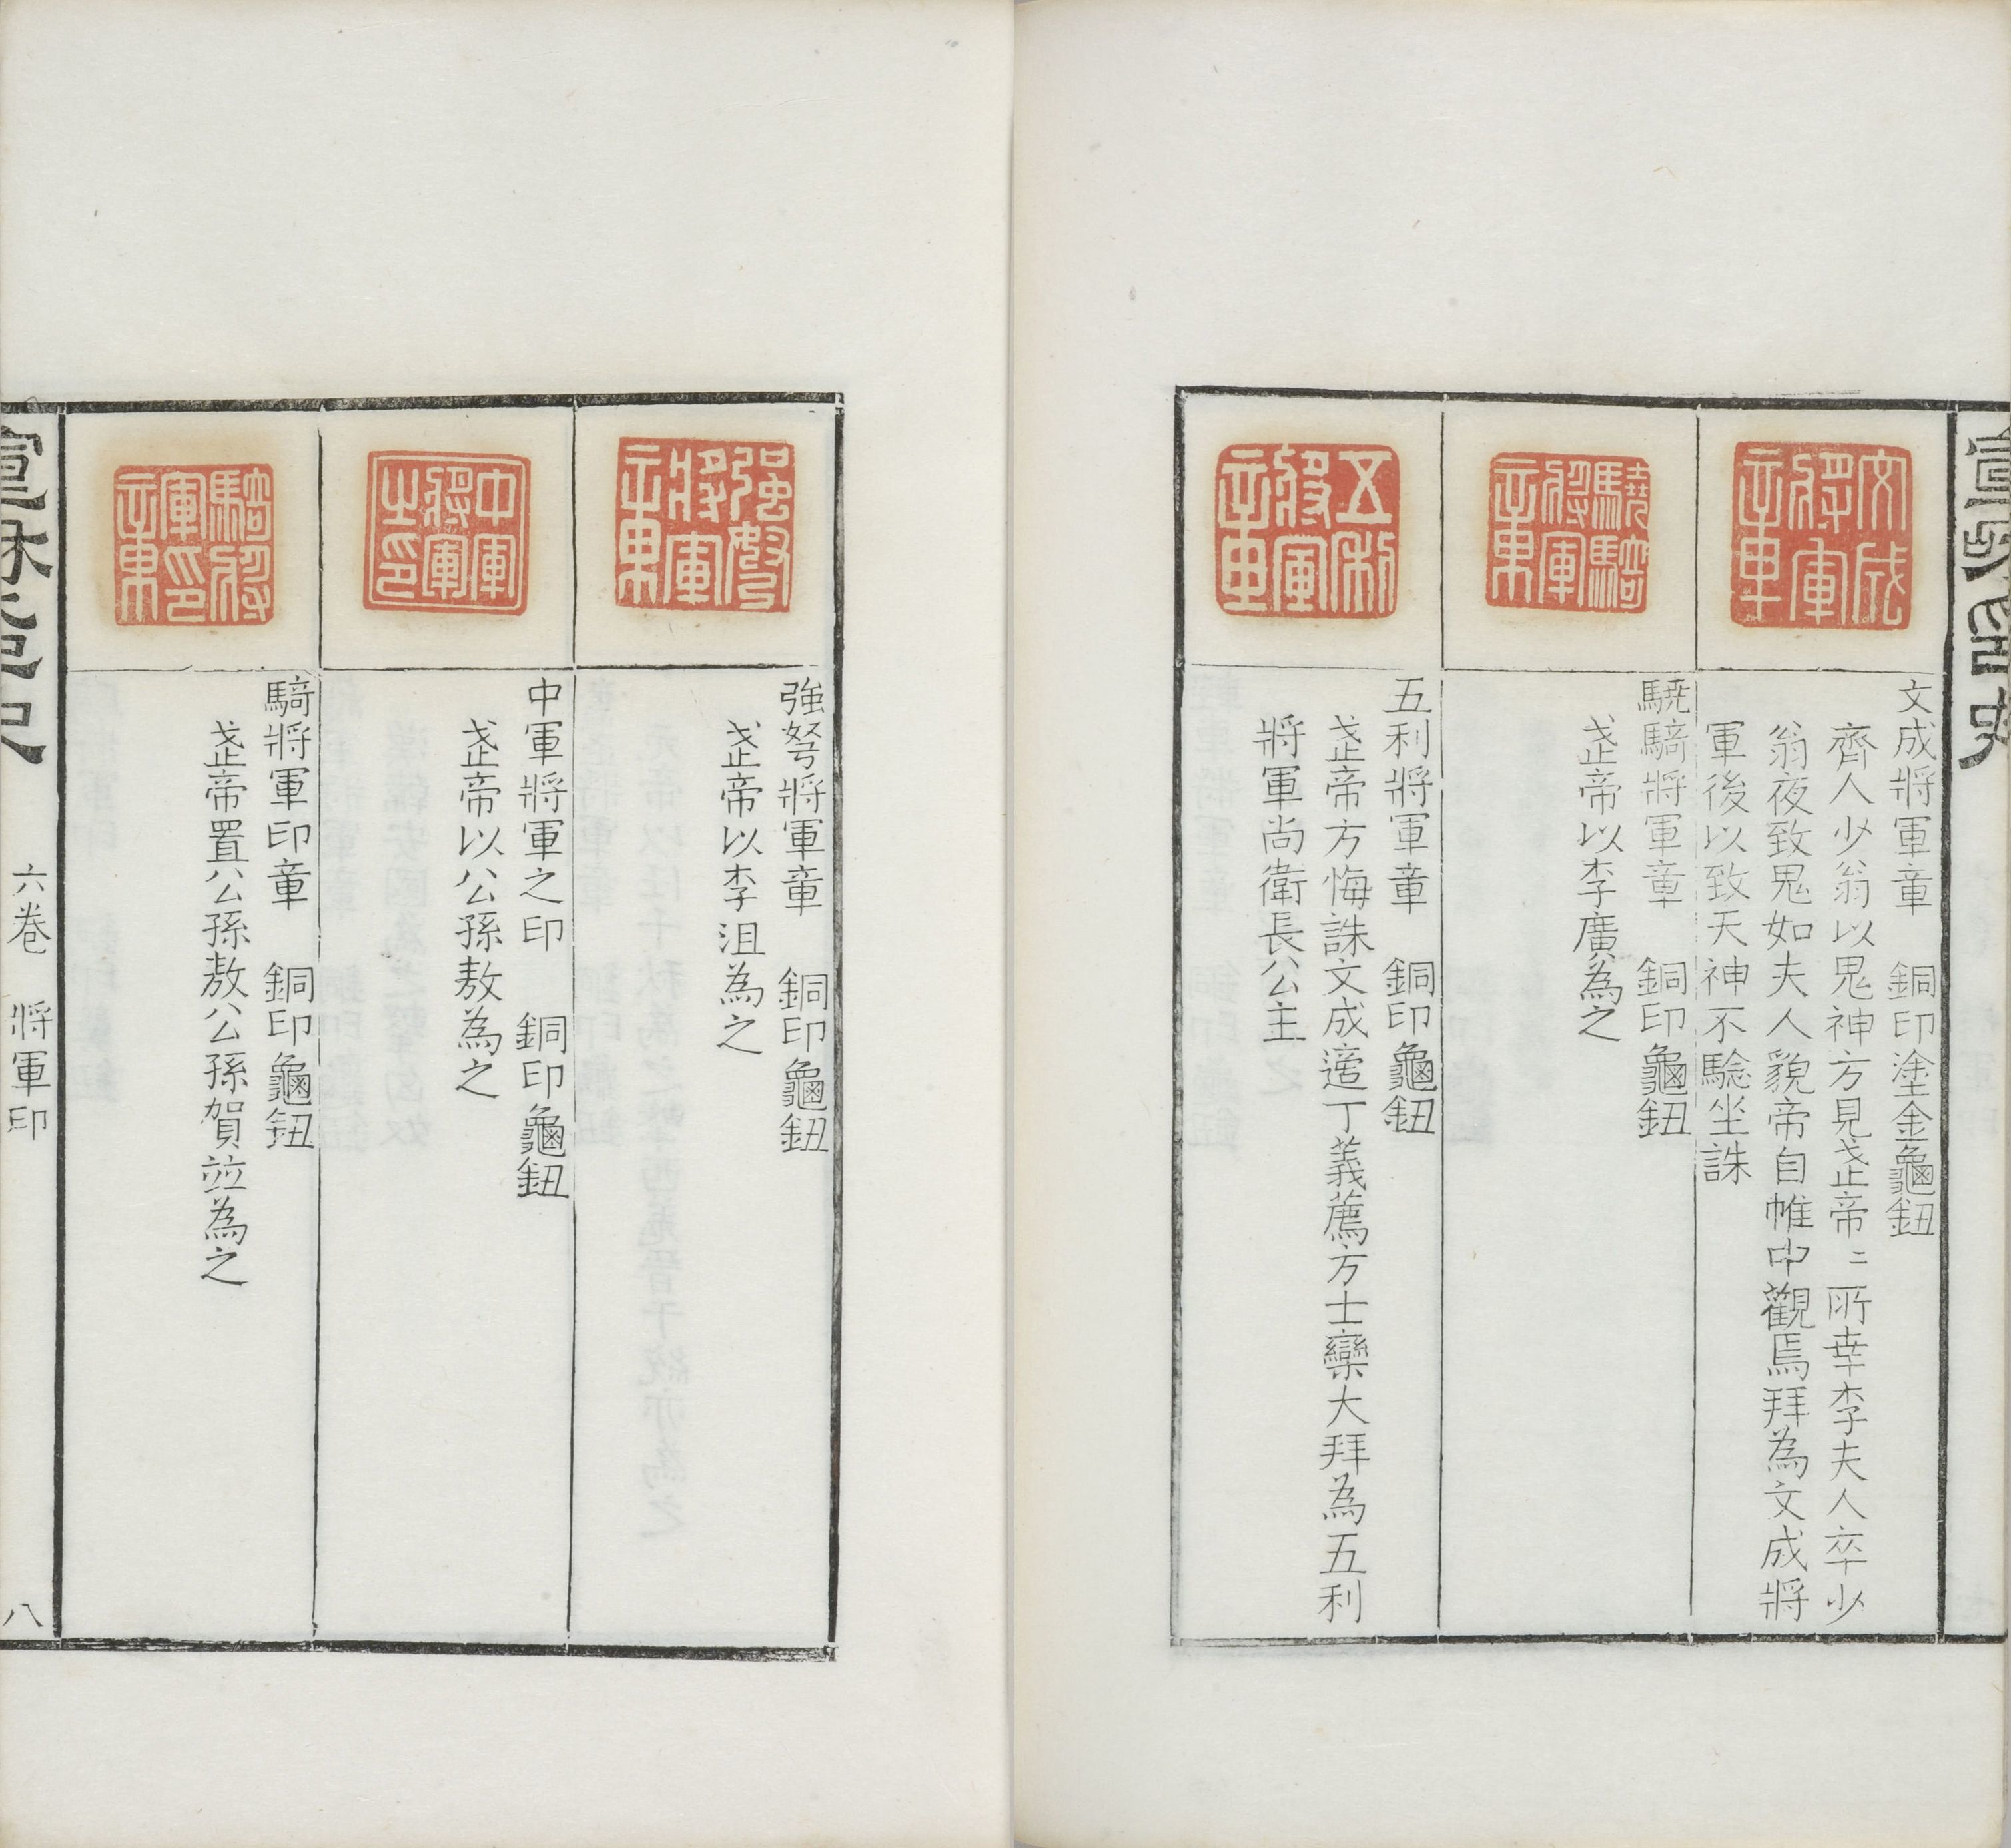 宣和印史
文成將軍章
文成將軍章 銅印塗金龜鈕
齊人少翁以鬼神方見武帝〻所幸李夫人卒少
翁夜致鬼如夫人貌帝自帷中觀焉拜為文成將
軍後以致天神不驗坐誅
驍騎將軍章
驍騎將軍章 銅印龜鈕
武帝以李廣為之
五利將軍章
五利將軍章 銅印龜鈕
武帝方悔誅文成適丁義薦方士欒大拜為五利
將軍尚衛長公主
强弩將軍章
強弩將軍章 銅印龜鈕
武帝以李沮為之
中軍將軍之印
中軍將軍之印 銅印龜鈕
武帝以公孫敖為之
騎將軍印章
騎將軍印章 銅印龜鈕
武帝置公孫敖公孫賀竝為之
宣和印史 六卷 將軍印 八